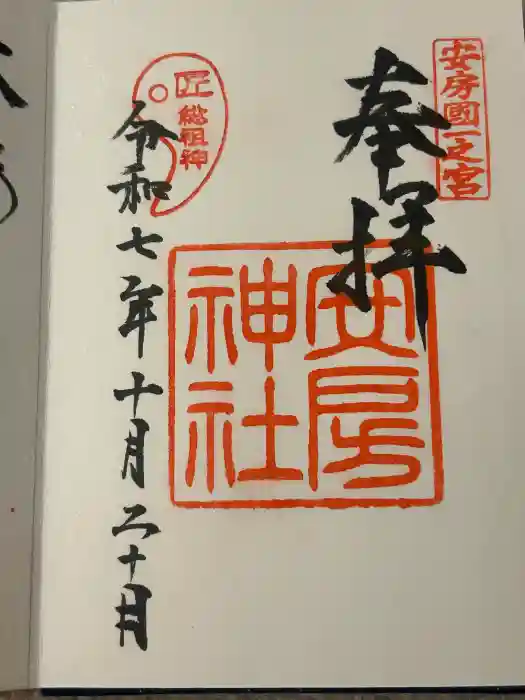 安房國一之宮
奉拝
安房
神社
匠
総祖神
令和七年十月二十日